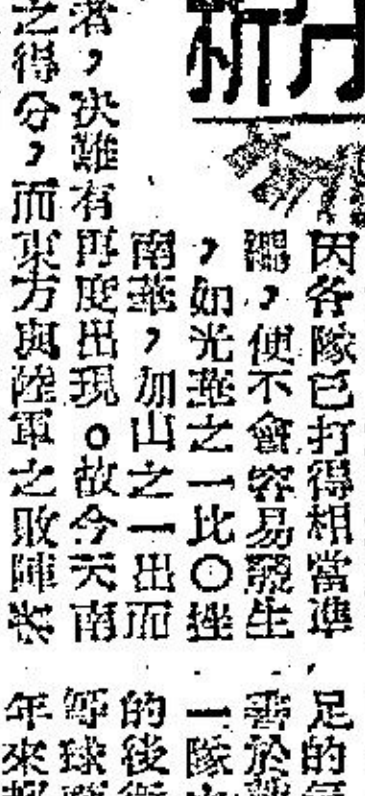 分析
因各隊已打得相當準
繩,便不會容易發生
,如光華之一比〇挫
南華,加山之一出而
者,决難有再度出現。故今天南
之得分,而東方與陸軍之敗陣
足的
善於
一隊
的後
球
年來